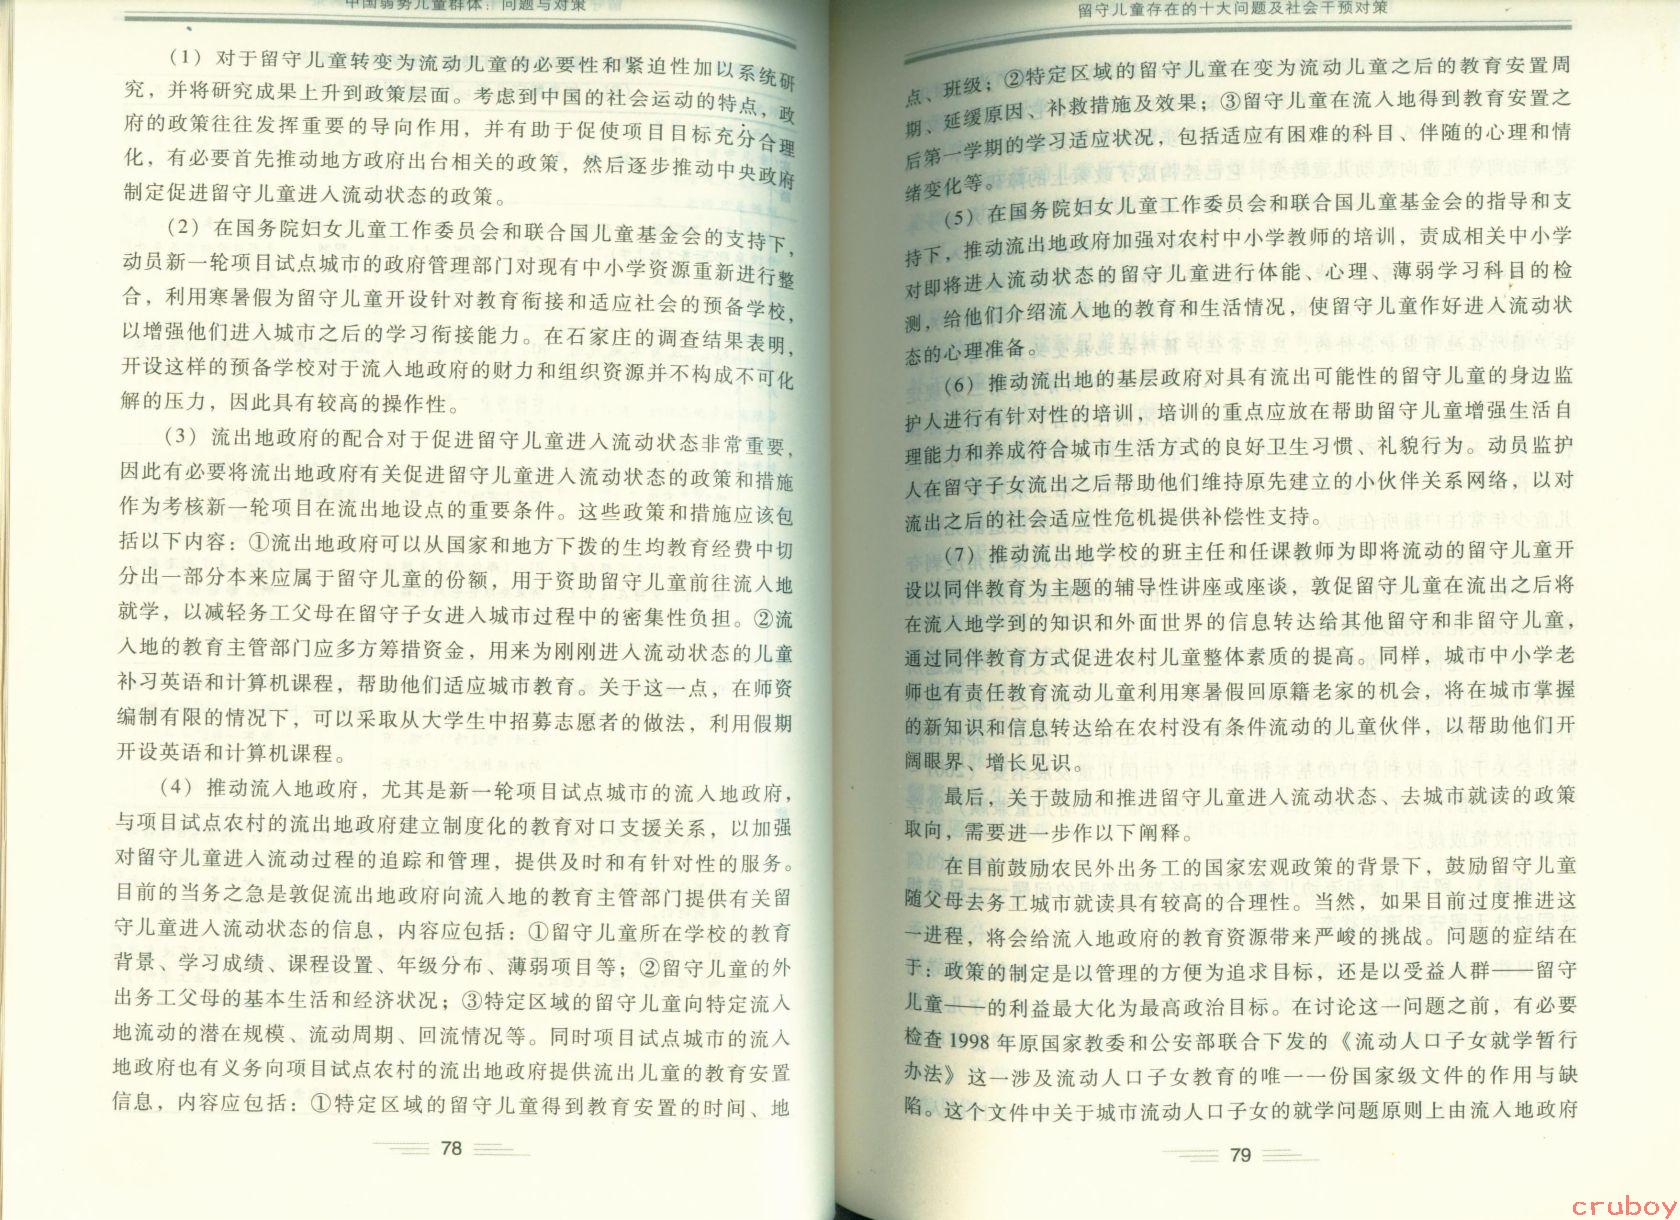 中国弱势儿童群体：问题与对策
（1）对于留守儿童转变为流动儿童的必要性和紧迫性加以系统研
究，并将研究成果上升到政策层面。考虑到中国的社会运动的特点，政
府的政策往往发挥重要的导向作用，并有助于促使项目目标充分合理
化，有必要首先推动地方政府出台相关的政策，然后逐步推动中央政府
制定促进留守儿童进入流动状态的政策。
（2）在国务院妇女儿童工作委员会和联合国儿童基金会的支持下，
动员新一轮项目试点城市的政府管理部门对现有中小学资源重新进行整
合，利用寒暑假为留守儿童开设针对教育衔接和适应社会的预备学校，
以增强他们进入城市之后的学习衔接能力。在石家庄的调查结果表明，
开设这样的预备学校对于流入地政府的财力和组织资源并不构成不可化
解的压力，因此具有较高的操作性。
（3）流出地政府的配合对于促进留守儿童进入流动状态非常重要，
因此有必要将流出地政府有关促进留守儿童进入流动状态的政策和措施
作为考核新一轮项目在流出地设点的重要条件。这些政策和措施应该包
括以下内容：①流出地政府可以从国家和地方下拨的生均教育经费中切
分出一部分本来应属于留守儿童的份额，用于资助留守儿童前往流入地
就学，以减轻务工父母在留守子女进入城市过程中的密集性负担。②流
入地的教育主管部门应多方筹措资金，用来为刚刚进入流动状态的儿童
补习英语和计算机课程，帮助他们适应城市教育。关于这一点，在师资
编制有限的情况下，可以采取从大学生中招募志愿者的做法，利用假期
开设英语和计算机课程。
（4）推动流入地政府，尤其是新一轮项目试点城市的流入地政府，
与项目试点农村的流出地政府建立制度化的教育对口支援关系，以加强
对留守儿童进入流动过程的追踪和管理，提供及时和有针对性的服务。
目前的当务之急是敦促流出地政府向流入地的教育主管部门提供有关留
守儿童进入流动状态的信息，内容应包括：①留守儿童所在学校的教育
背景、学习成绩、课程设置、年级分布、薄弱项目等；②留守儿童的外
出务工父母的基本生活和经济状况；③特定区域的留守儿童向特定流入
地流动的潜在规模、流动周期、回流情况等。同时项目试点城市的流入
地政府也有义务向项目试点农村的流出地政府提供流出儿童的教育安置
信息，内容应包括：①特定区域的留守儿童得到教育安置的时间、地
78
留守儿童存在的十大问题及社会干预对策
点、班级；②特定区域的留守儿童在变为流动儿童之后的教育安置周
期、延缓原因、补救措施及效果；③留守儿童在流入地得到教育安置之
后第一学期的学习适应状况，包括适应有困难的科目、伴随的心理和情
绪变化等。
（5）在国务院妇女儿童工作委员会和联合国儿童基金会的指导和支
持下，推动流出地政府加强对农村中小学教师的培训，责成相关中小学
对即将进入流动状态的留守儿童进行体能、心理、薄弱学习科目的检
测，给他们介绍流入地的教育和生活情况，使留守儿童作好进入流动状
态的心理准备。
（6）推动流出地的基层政府对具有流出可能性的留守儿童的身边监
护人进行有针对性的培训，培训的重点应放在帮助留守儿童增强生活自
理能力和养成符合城市生活方式的良好卫生习惯、礼貌行为。动员监护
人在留守子女流出之后帮助他们维持原先建立的小伙伴关系网络，以对
流出之后的社会适应性危机提供补偿性支持。
（7）推动流出地学校的班主任和任课教师为即将流动的留守儿童开
设以同伴教育为主题的辅导性讲座或座谈，敦促留守儿童在流出之后将
在流入地学到的知识和外面世界的信息转达给其他留守和非留守儿童，
通过同伴教育方式促进农村儿童整体素质的提高。同样，城市中小学老
师也有责任教育流动儿童利用寒暑假回原籍老家的机会，将在城市掌握
的新知识和信息转达给在农村没有条件流动的儿童伙伴，以帮助他们开
阔眼界、增长见识。
最后，关于鼓励和推进留守儿童进入流动状态、去城市就读的政策
取向，需要进一步作以下阐释。
在目前鼓励农民外出务工的国家宏观政策的背景下，鼓励留守儿童
随父母去务工城市就读具有较高的合理性。当然，如果目前过度推进这
一进程，将会给流入地政府的教育资源带来严峻的挑战。问题的症结在
于：政策的制定是以管理的方便为追求目标，还是以受益人群——留守
儿童——的利益最大化为最高政治目标。在讨论这一问题之前，有必要
检查1998年原国家教委和公安部联合下发的《流动人口子女就学暂行
办法》这一涉及流动人口子女教育的唯一一份国家级文件的作用与缺
陷。这个文件中关于城市流动人口子女的就学问题原则上由流入地政府
79
cruboy